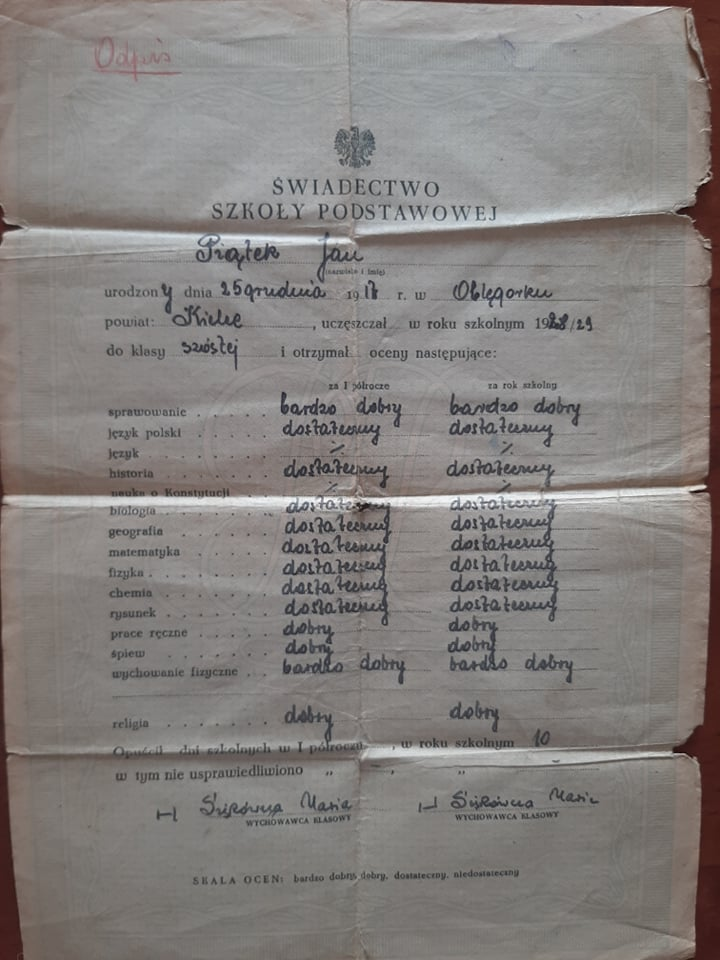 Odpis
ŚWIADECTWO
SZKOŁY PODSTAWOWEJ
Piątek Jan
(nazwisko i imię)
urodzony dnia 25 grudnia 1917 r. w Oblęgorku
powiat: Kielce, uczęszczał w roku szkolnym 1928/29
do klasy szóstej i otrzymał oceny następujące:
za I półrocze za rok szkolny
sprawowanie bardzo dobry bardzo dobry
język polski dostateczny dostateczny
język %
historia dostateczny dostateczny
nauka o Konstytucji % %
biologia dostateczny dostateczny
geografia dostateczny dostateczny
matematyka dostateczny dostateczny
fizyka dostateczny dostateczny
chemia dostateczny dostateczny
rysunek dostateczny dostateczny
prace ręczne dobry dobry
śpiew dobry dobry
wychowanie fizyczne bardzo dobry bardzo dobry
religia dobry dobry
Opuścił dni szkolnych w I półroczu, w roku szkolnym 10
w tym nie usprawiedliwiono „ , „
Maria Maria
WYCHOWAWCA KLASOWY WYCHOWAWCA KLASOWY
SKALA OCEN: bardzo dobry, dobry, dostateczny, niedostateczny